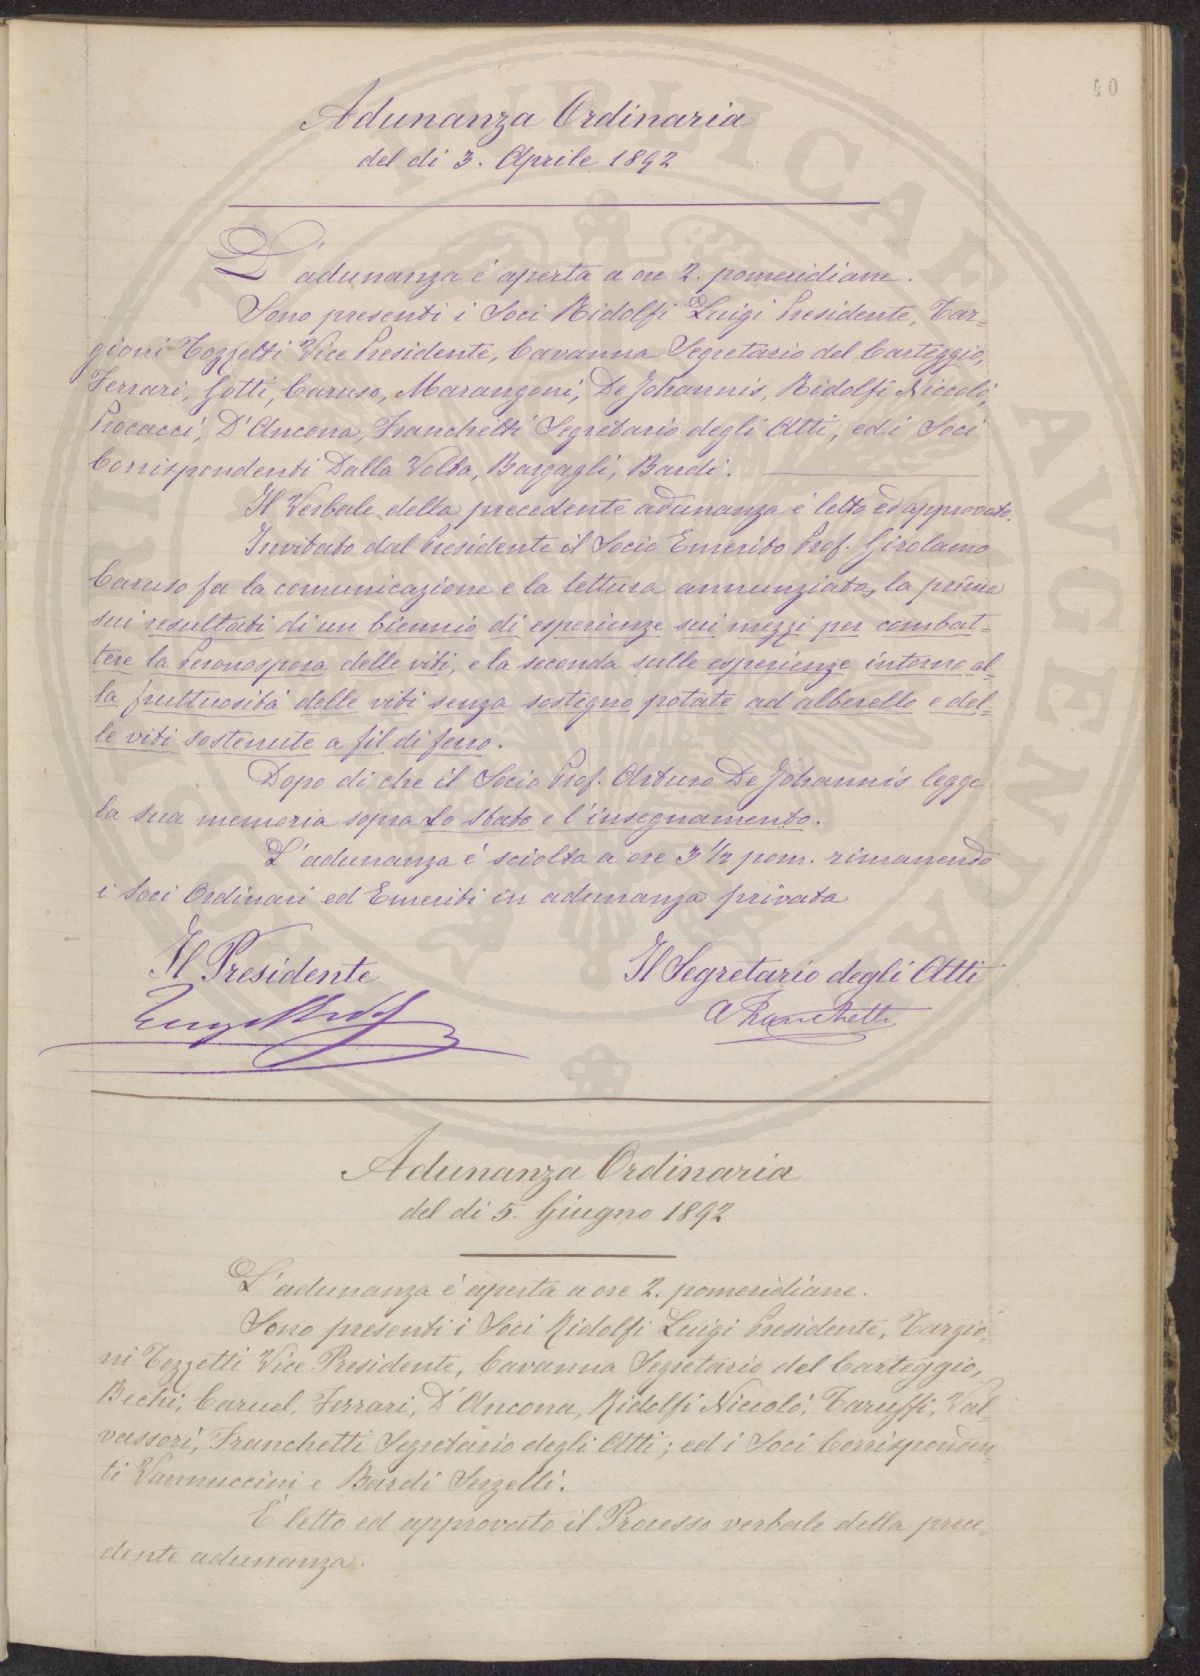 40
Adunanza Ordinaria
del di 3. Aprile 1892
L'adunanza é aperta a ore 2. pomeridiane.
Sono presenti i Soci Ridolfi Luigi Presidente, Tar-
gioni Tozzetti Vice Presidente, Cavanna Segretario del Carteggio,
Ferrari, Gotti, Caruso, Marangoni, De Johannis, Ridolfi Niccoló,
Procacci, D'Ancona, Franchetti Segretario degli Atti, ed i Soci
Corrispondenti Dalla Volta, Bargagli, Bardi.
Il Verbale della precedente adunanza é letto ed approvato.
Invitato dal Presidente il Socio Emerito Prof. Girolamo
Caruso fa la comunicazione e la lettura annunziata, la prima
sui resultati di un biennio di esperienze sui mezzi per combat-
tere la Peronospora delle viti, e la seconda sulle esperienze intorno al-
la fruttuositá delle viti senza sostegno potate ad alberello e del-
le viti sostenute a fil di ferro.
Dopo di che il Socio Prof. Arturo De Johannis legge
la sua memoria sopra Lo Stato e l'insegnamento.
L'adunanza é sciolta a ore 3 1/2 pom. rimanendo
i Soci Ordinari ed Emeriti in adunanza privata
Il Presidente
Il Segretario degli Atti
A Franchetti
Adunanza Ordinaria
del di 5. Giugno 1892
L'adunanza é aperta a ore 2. pomeridiane.
Sono presenti i Soci Ridolfi Luigi Presidente, Targio-
ni Tozzetti Vice Presidente, Cavanna Segretario del Carteggio,
Bechi, Caruel, Ferrari, D'Ancona, Ridolfi Niccoló, Taruffi, Val-
vassori, Franchetti Segretario degli Atti; ed i Soci Corrisponden-
ti Vannuccini e Bardi Serzelli.
É letto ed approvato il Processo verbale della prece-
dente adunanza.